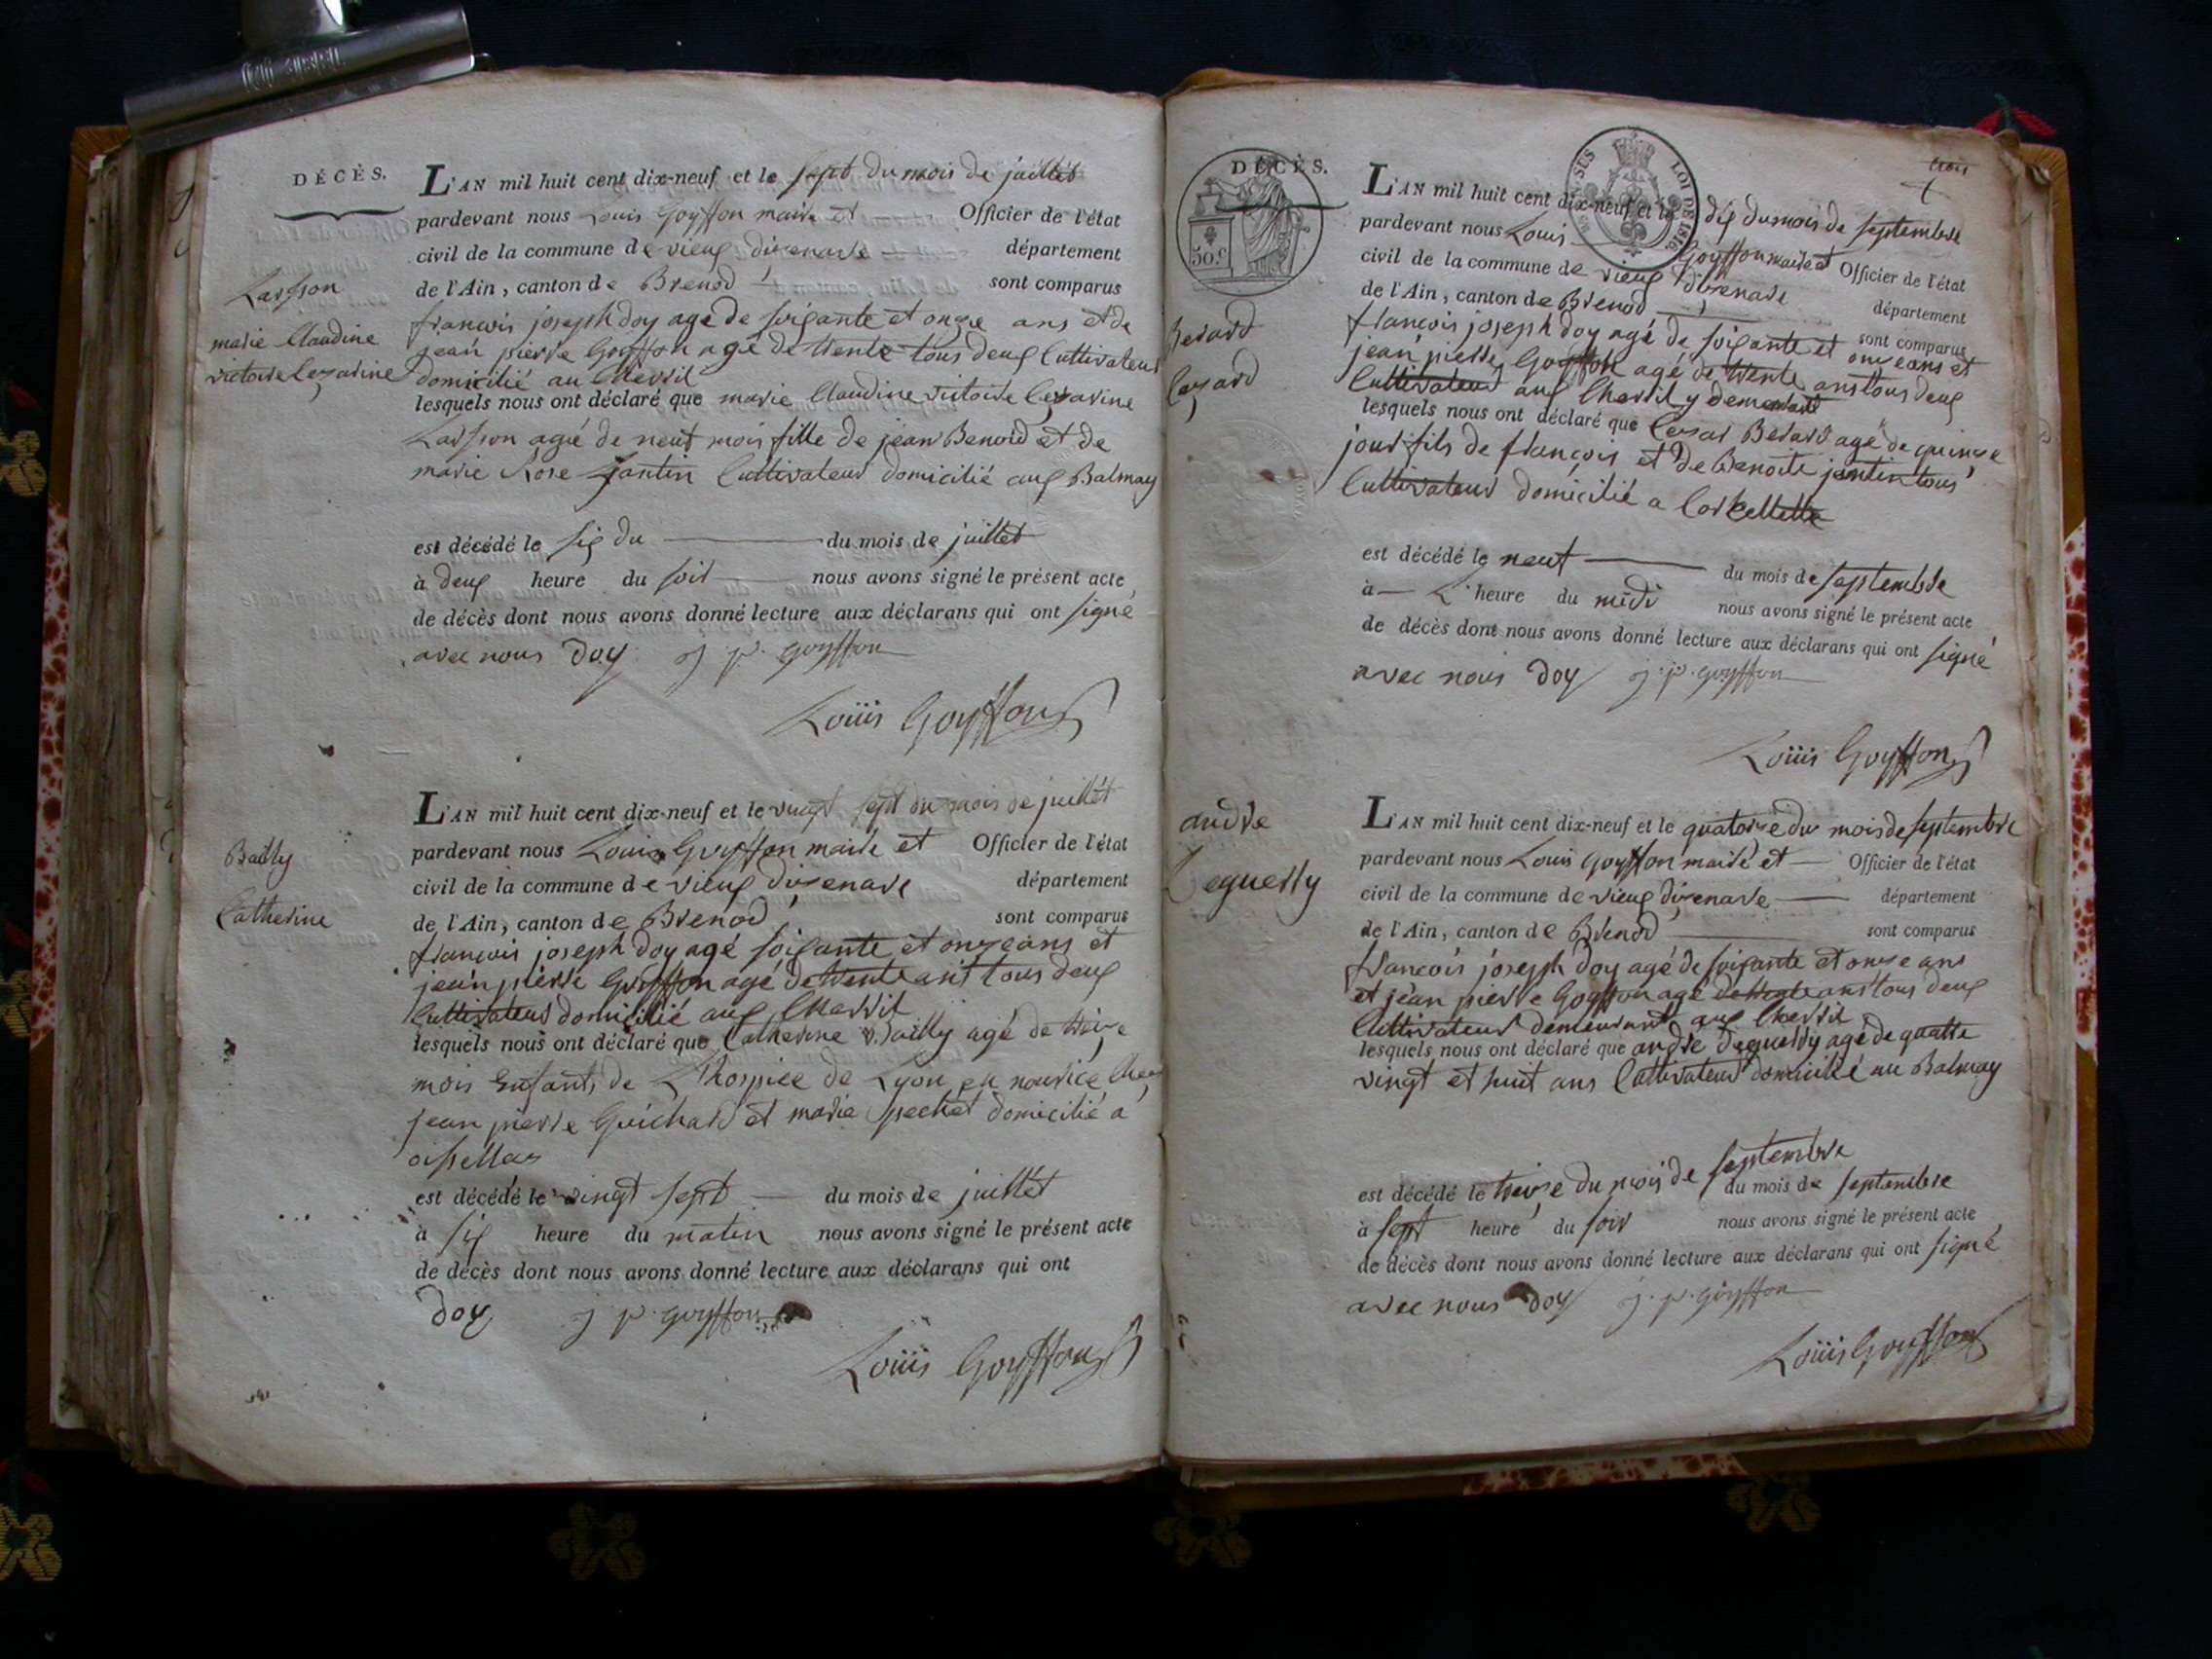 DÉCÈS.
L'AN mil huit cent dix-neuf et le sept du mois de juillet
pardevant nous Louis Goyffon maire et Officier de l'état
civil de la commune de vieux dizenave département
de l'Ain, canton de Brenod sont comparus
françois joseph doy agé de soixante et onze ans et de
jean pierre Goyffon agé de trente tous deux Cultivateur
domicilié au Chevril
lesquels nous ont déclaré que marie Claudine victoire Cezarine
agé de neuf mois fille de jean Benoid et de
marie Rose jantin Cultivateur domicilié aux Balmay
est décédé le six du du mois de juillet
à deux heure du soir nous avons signé le présent acte
de décès dont nous avons donné lecture aux déclarans qui ont signé
avec nous doy j p. goyffon
Loüis Goyffon
marie Claudine
victoire Cezarine
L'AN mil huit cent dix-neuf et le vingt sept du mois de juillet
pardevant nous Louis Goyffon maire et Officier de l'état
civil de la commune de vieux dizenave département
de l'Ain, canton de Brenod sont comparus
françois joseph doy agé soixante et onze ans et
jean pierre Goyffon agé de trente ans tous deux
Cultivateur domicilié aux Chevril
lesquels nous ont déclaré que Catherine Bailly agé de treize
mois Enfants de L'hospice de Lyon en nourice Chez
jean pierre Guichard et marie pechet domicilié a
oissellaz
est décédé le vingt sept du mois de juillet
à six heure du matin nous avons signé le présent acte
de décès dont nous avons donné lecture aux déclarans qui ont
doy j p. goyffon
Loüis Goyffon
Bailly
Catherine
DÉCÈS.
50.c
SUS
LOI DE 1816.
trois
L'AN mil huit cent dix-neuf et le dix du mois de septembre
pardevant nous Louis Goyffon maire et Officier de l'état
civil de la commune de vieux dizenave département
de l'Ain, canton de Brenod sont comparus
françois joseph doy agé de soixante et onze ans et
jean pierre Goyffon agé de trente ans tous deux
Cultivateur aux Chevril y demeurant
lesquels nous ont déclaré que Cezar Berard agé de quinze
jour fils de françois et de Benoite jantin tous
Cultivateur domicilié a Corcellette
est décédé le neuf du mois de septembre
à L'heure du midi nous avons signé le présent acte
de décès dont nous avons donné lecture aux déclarans qui ont signé
avec nous doy j. p. goyffon
Loüis Goyffon
Berard
Cezard
L'AN mil huit cent dix-neuf et le quatorze du mois de septembre
pardevant nous Louis Goyffon maire et Officier de l'état
civil de la commune de vieux dizenave département
de l'Ain, canton de Brenod sont comparus
françois joseph doy agé de soixante et onze ans
et jean pierre Goyffon agé de trente ans tous deux
Cultivateur demeurant aux Chevril
lesquels nous ont déclaré que andre Deguerry agé de quatre
vingt et huit ans Cultivateur domicilié au Balmay
est décédé le treize du mois de septembre du mois de septembre
à sept heure du soir nous avons signé le présent acte
de décès dont nous avons donné lecture aux déclarans qui ont signé
avec nous doy j. p. goyffon
Loüis Goyffon
andre
Deguerry